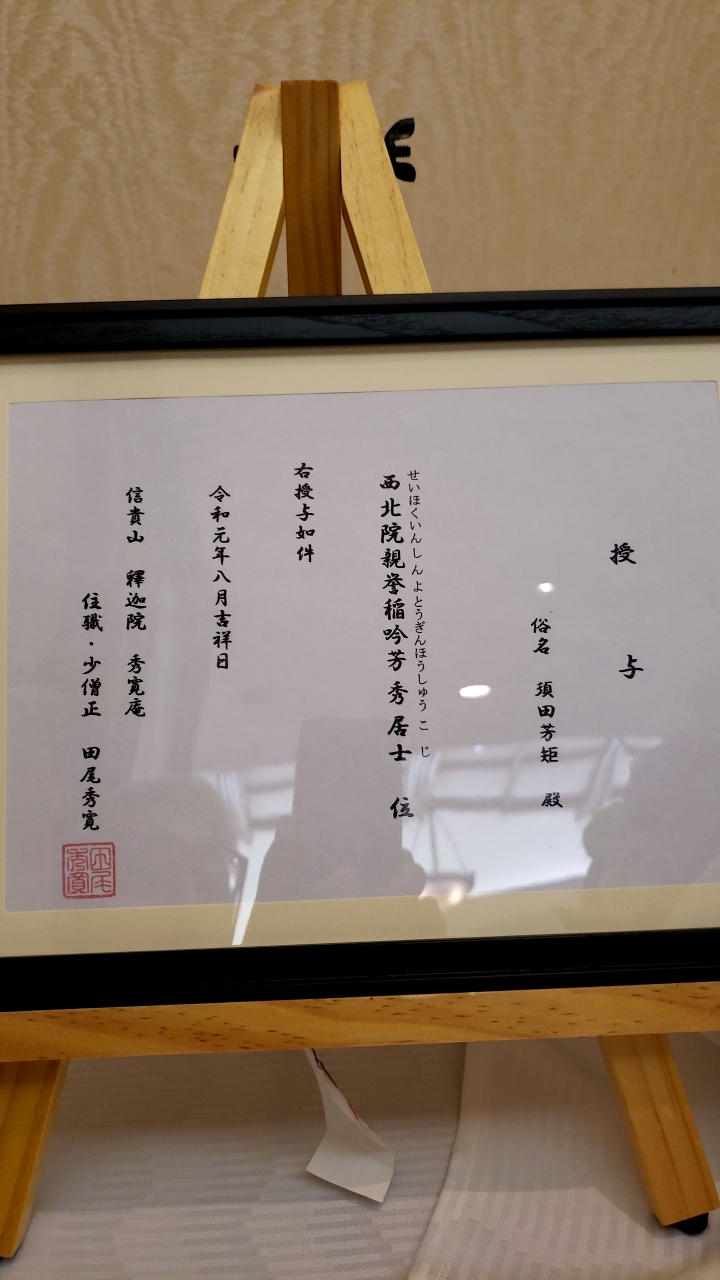 授 与
俗名 須田芳矩 殿
せいほくいんしんよとうぎんほうしゅうこじ
西北院親誉稲吟芳秀居士 位
右授与如件
令和元年八月吉祥日
信貴山 釋迦院 秀寛庵
住職・少僧正 田尾秀寛
田尾秀寛